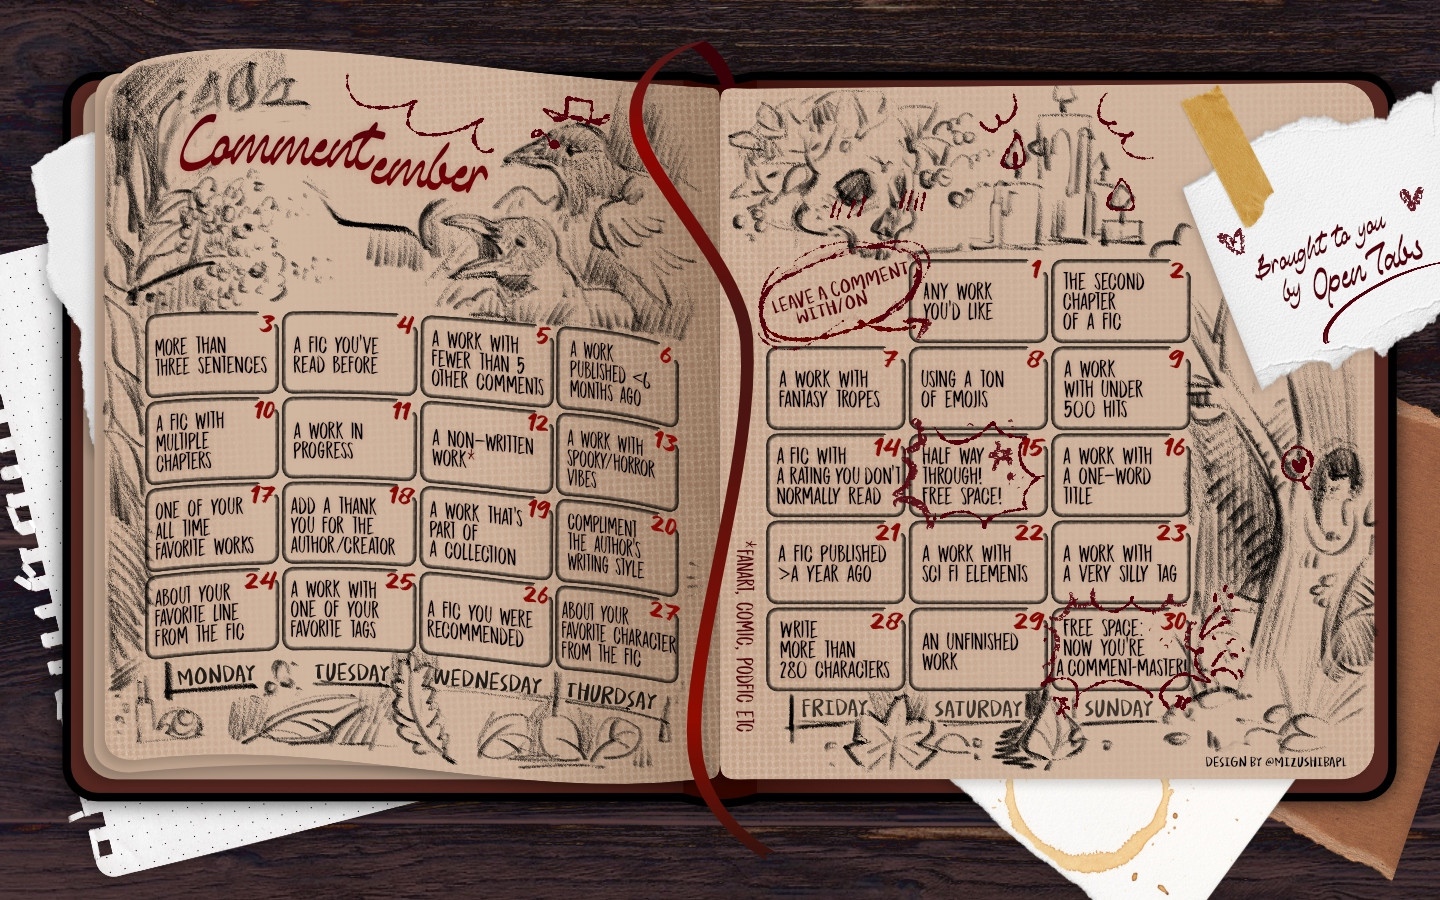 Commentember
LEAVE A COMMENT
WITH/ON
1
ANY WORK
YOU'D LIKE
2
THE SECOND
CHAPTER
OF A FIC
3
MORE THAN
THREE SENTENCES
4
A FIC YOU'VE
READ BEFORE
5
A WORK WITH
FEWER THAN 5
OTHER COMMENTS
6
A WORK
PUBLISHED <6
MONTHS AGO
7
A WORK WITH
FANTASY TROPES
8
USING A TON
OF EMOJIS
9
A WORK
WITH UNDER
500 HITS
10
A FIC WITH
MULTIPLE
CHAPTERS
11
A WORK IN
PROGRESS
12
A NON-WRITTEN
WORK*
13
A WORK WITH
SPOOKY/HORROR
VIBES
14
A FIC WITH
A RATING YOU DON'T
NORMALLY READ
15
HALF WAY
THROUGH!
FREE SPACE!
16
A WORK WITH
A ONE-WORD
TITLE
17
ONE OF YOUR
ALL TIME
FAVORITE WORKS
18
ADD A THANK
YOU FOR THE
AUTHOR/CREATOR
19
A WORK THAT'S
PART OF
A COLLECTION
20
COMPLIMENT
THE AUTHOR'S
WRITING STYLE
21
A FIC PUBLISHED
>A YEAR AGO
22
A WORK WITH
SCI FI ELEMENTS
23
A WORK WITH
A VERY SILLY TAG
24
ABOUT YOUR
FAVORITE LINE
FROM THE FIC
25
A WORK WITH
ONE OF YOUR
FAVORITE TAGS
26
A FIC YOU WERE
RECOMMENDED
27
ABOUT YOUR
FAVORITE CHARACTER
FROM THE FIC
28
WRITE
MORE THAN
280 CHARACTERS
29
AN UNFINISHED
WORK
30
FREE SPACE:
NOW YOU'RE
A COMMENT-MASTER!
MONDAY
TUESDAY
WEDNESDAY
THURDSAY
FRIDAY
SATURDAY
SUNDAY
*FANART, COMIC, PODFIC ETC
Brought to you
by Open Tabs
DESIGN BY @MIZUSHIBAPL